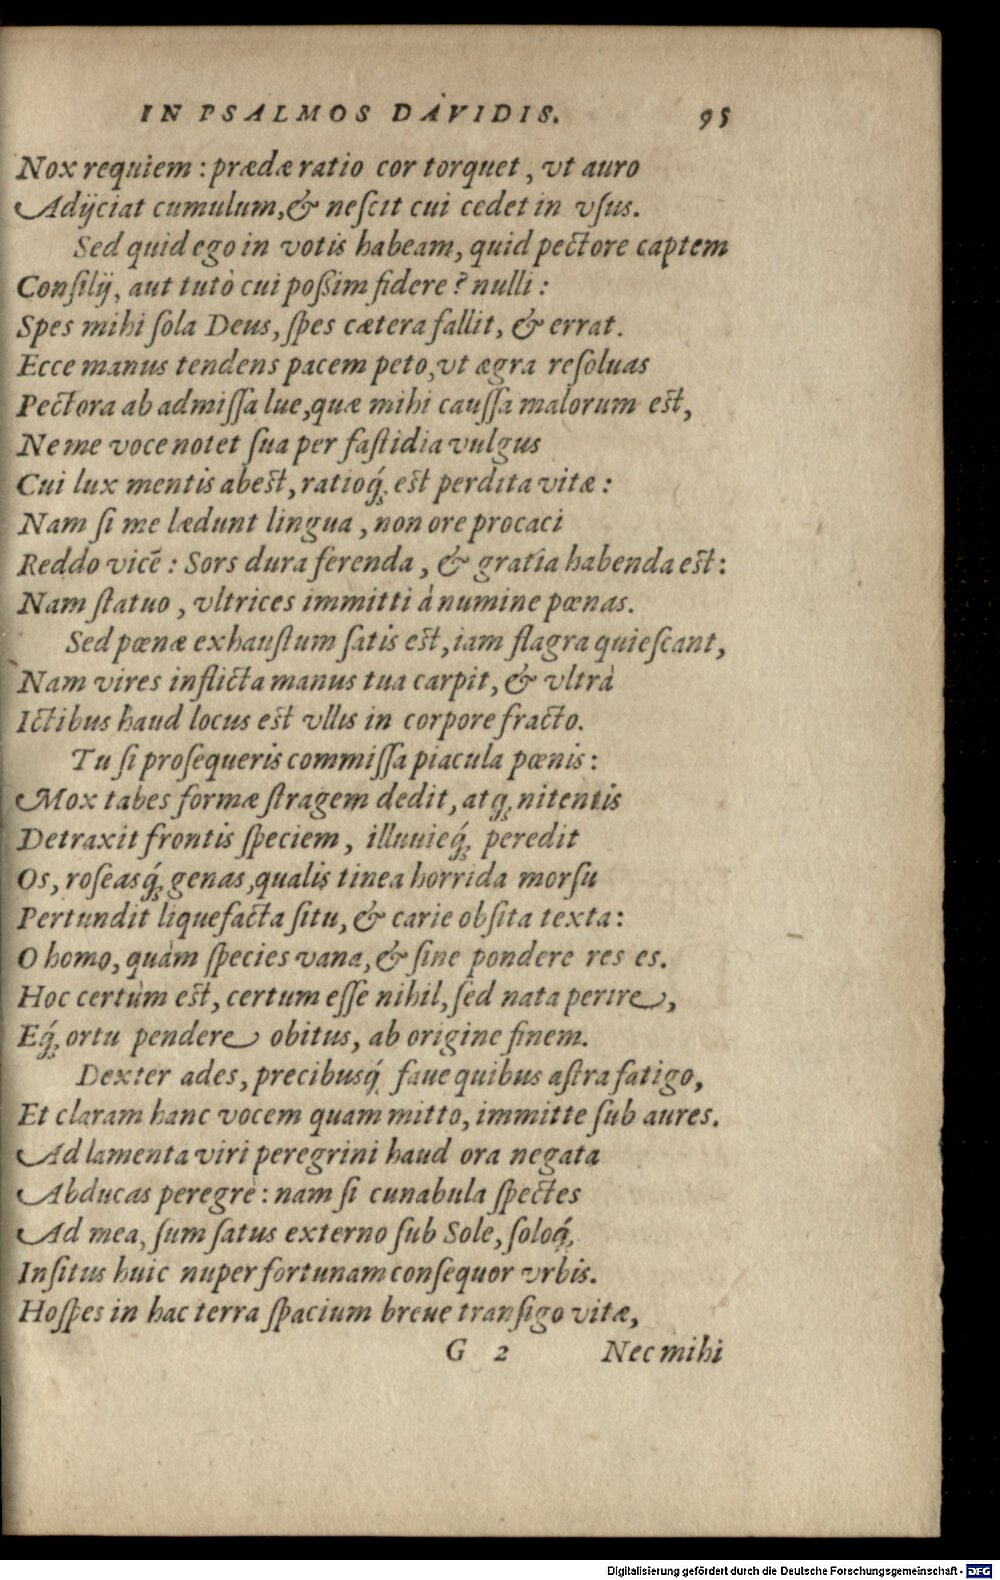 IN PSALMOS DAVIDIS. 95
Nox requiem : prædæ ratio cor torquet, vt auro
Adijciat cumulum, & neſcit cui cedet in vſus.
Sed quid ego in votis habeam, quid pectore captem
Conſilij, aut tutò cui poßim fidere? nulli:
Spes mihi ſola Deus, ſpes cætera fallit, & errat.
Ecce manus tendens pacem peto, vt ægra reſoluas
Pectora ab admiſſa lue, quæ mihi cauſſa malorum est,
Ne me voce notet ſua per faſtidia vulgus
Cui lux mentis abest, ratioq́; est perdita vitæ:
Nam ſi me lædunt lingua, non ore procaci
Reddo vicē: Sors dura ferenda, & gratia habenda est:
Nam ſtatuo, vltrices immitti à numine pœnas.
Sed pœnæ exhauſtum ſatis est, iam flagra quieſcant,
Nam vires inflicta manus tua carpit, & vltrà
Ictibus haud locus est vllis in corpore fracto.
Tu ſi proſequeris commiſſa piacula pœnis:
Mox tabes formæ ſtragem dedit, atq; nitentis
Detraxit frontis ſpeciem, illuuieq́; peredit
Os, roſeasq́; genas, qualis tinea horrida morſu
Pertundit liquefacta ſitu, & carie obſita texta:
O homo, quàm ſpecies vana, & ſine pondere res es.
Hoc certùm est, certum eſſe nihil, ſed nata perire,
Eq́; ortu pendere obitus, ab origine finem.
Dexter ades, precibusq́; faue quibus aſtra fatigo,
Et claram hanc vocem quam mitto, immitte ſub aures.
Ad lamenta viri peregrini haud ora negata
Abducas peregrè: nam ſi cunabula ſpectes
Ad mea, ſum ſatus externo ſub Sole, ſoloq́;
Inſitus huic nuper fortunam conſequor vrbis.
Hoſpes in hac terra ſpacium breue tranſigo vitæ,
G 2 Nec mihi
Digitalisierung gefördert durch die Deutsche Forschungsgemeinschaft - DFG